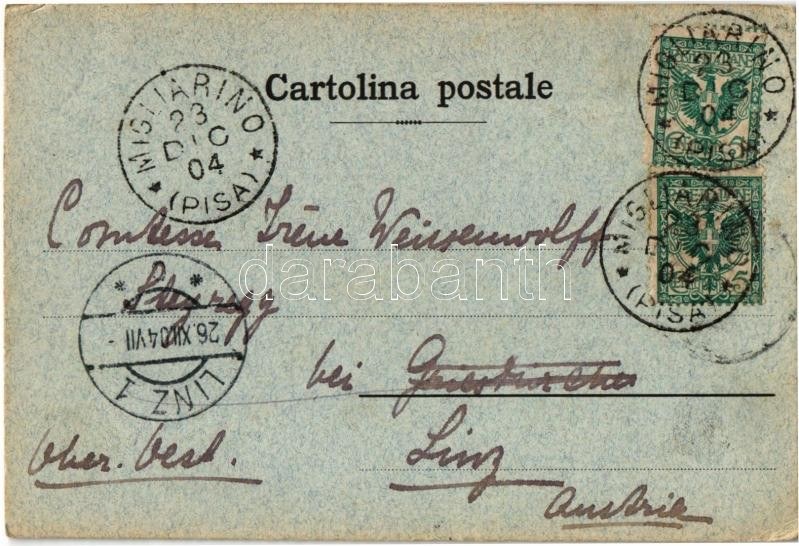 Cartolina postale
MIGLIARINO
23
DIC
04
(PISA)
MIGLIARINO
23
DIC
04
(PISA)
MIGLIARINO
04
(PISA)
Comtesse Irène Weissenwolff
darabanth
Steyregg
26.XII.04 VII
LINZ 1
bei
Linz
Ober. Oest.
Austria